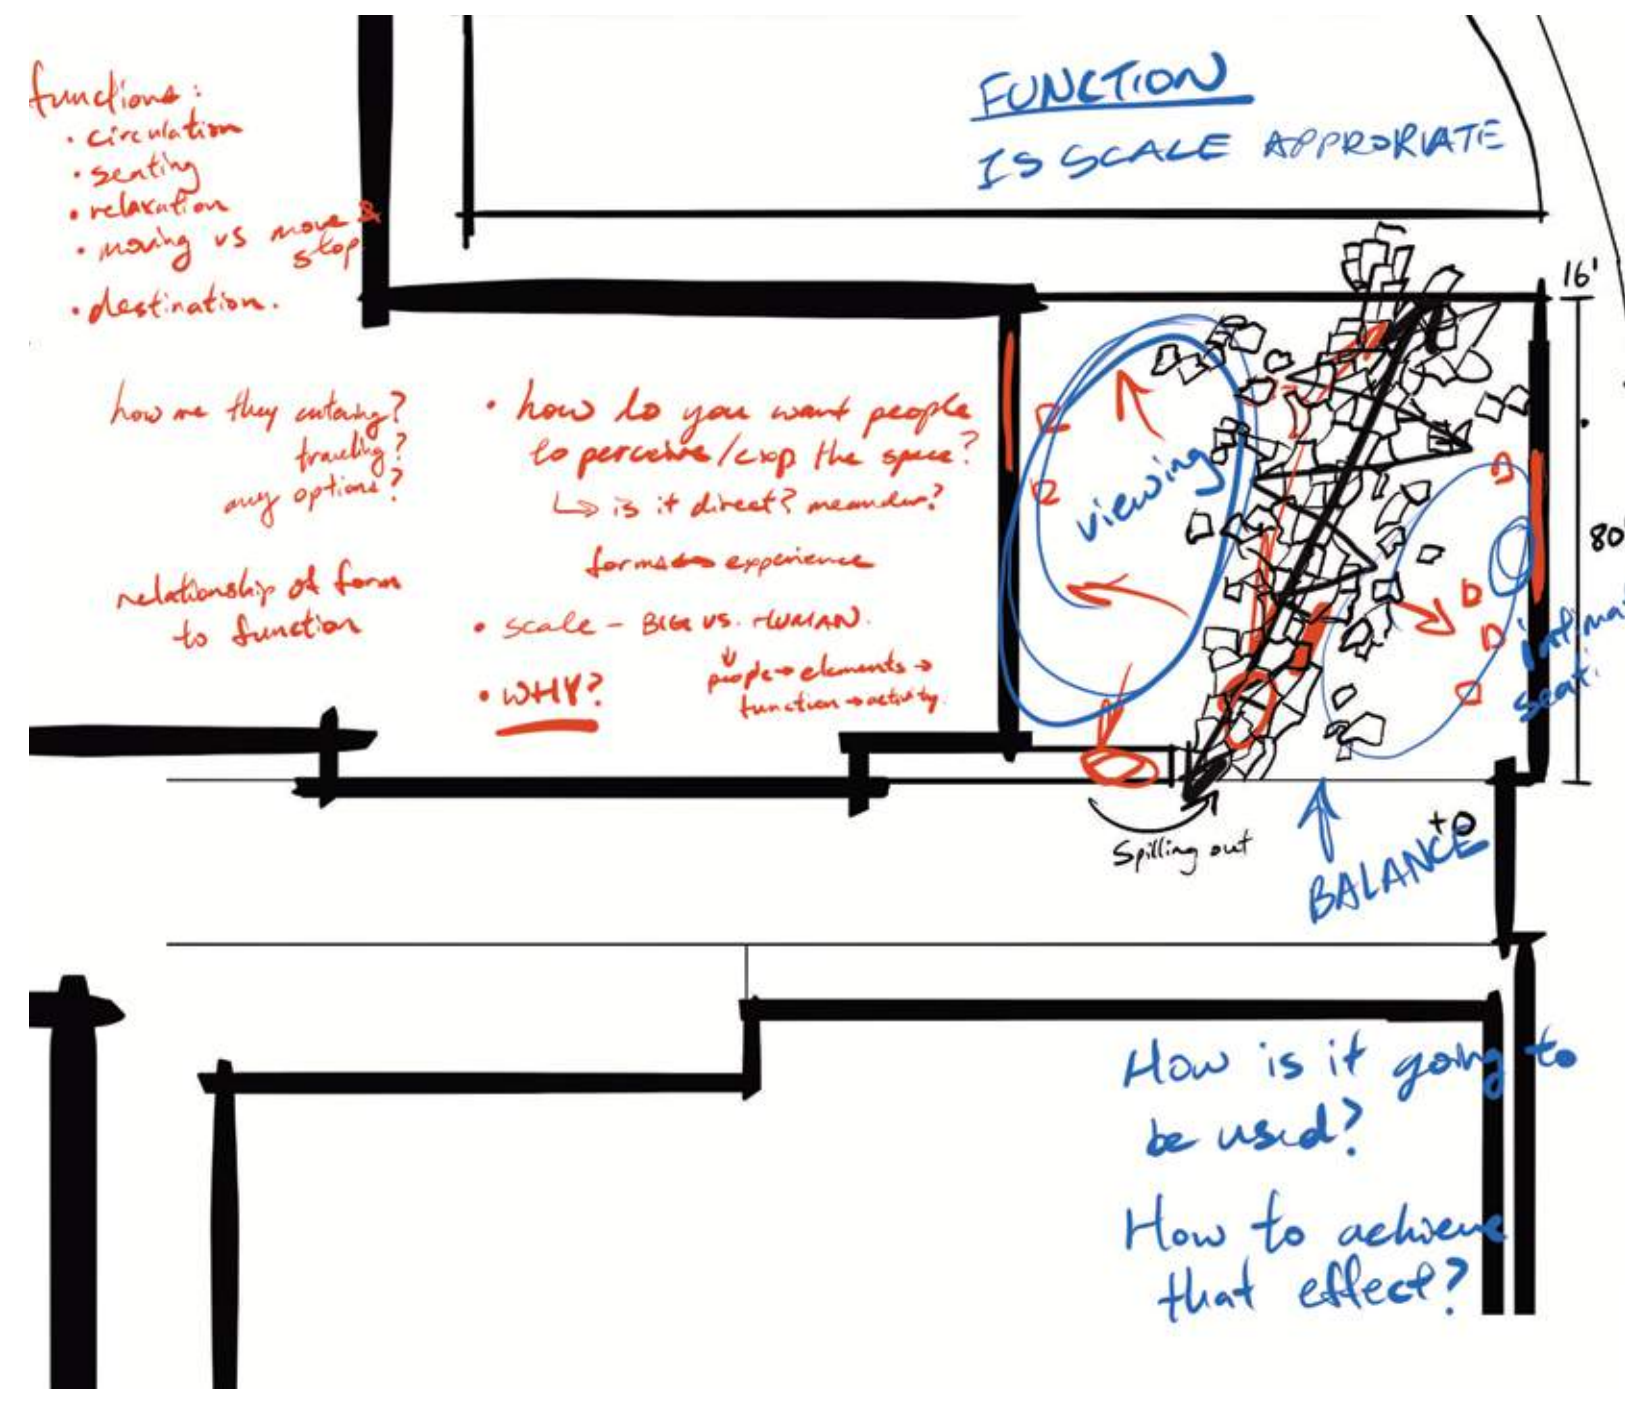 functions:
• circulation
• seating
• relaxation
• moving vs move &
stop
• destination.
FUNCTION
IS SCALE APPRORIATE
16'
80'
how are they entering?
traveling?
any options?
relationship of form
to function
• how do you want people
to perceive/ the space?
↳ is it direct? meander?
forms ↔ experience
• scale - BIG VS. HUMAN.
↓
people → elements →
function → activity.
• WHY?
viewing
intima
seati
Spilling out
+0
BALANCE
How is it going to
be used?
How to achieve
that effect?